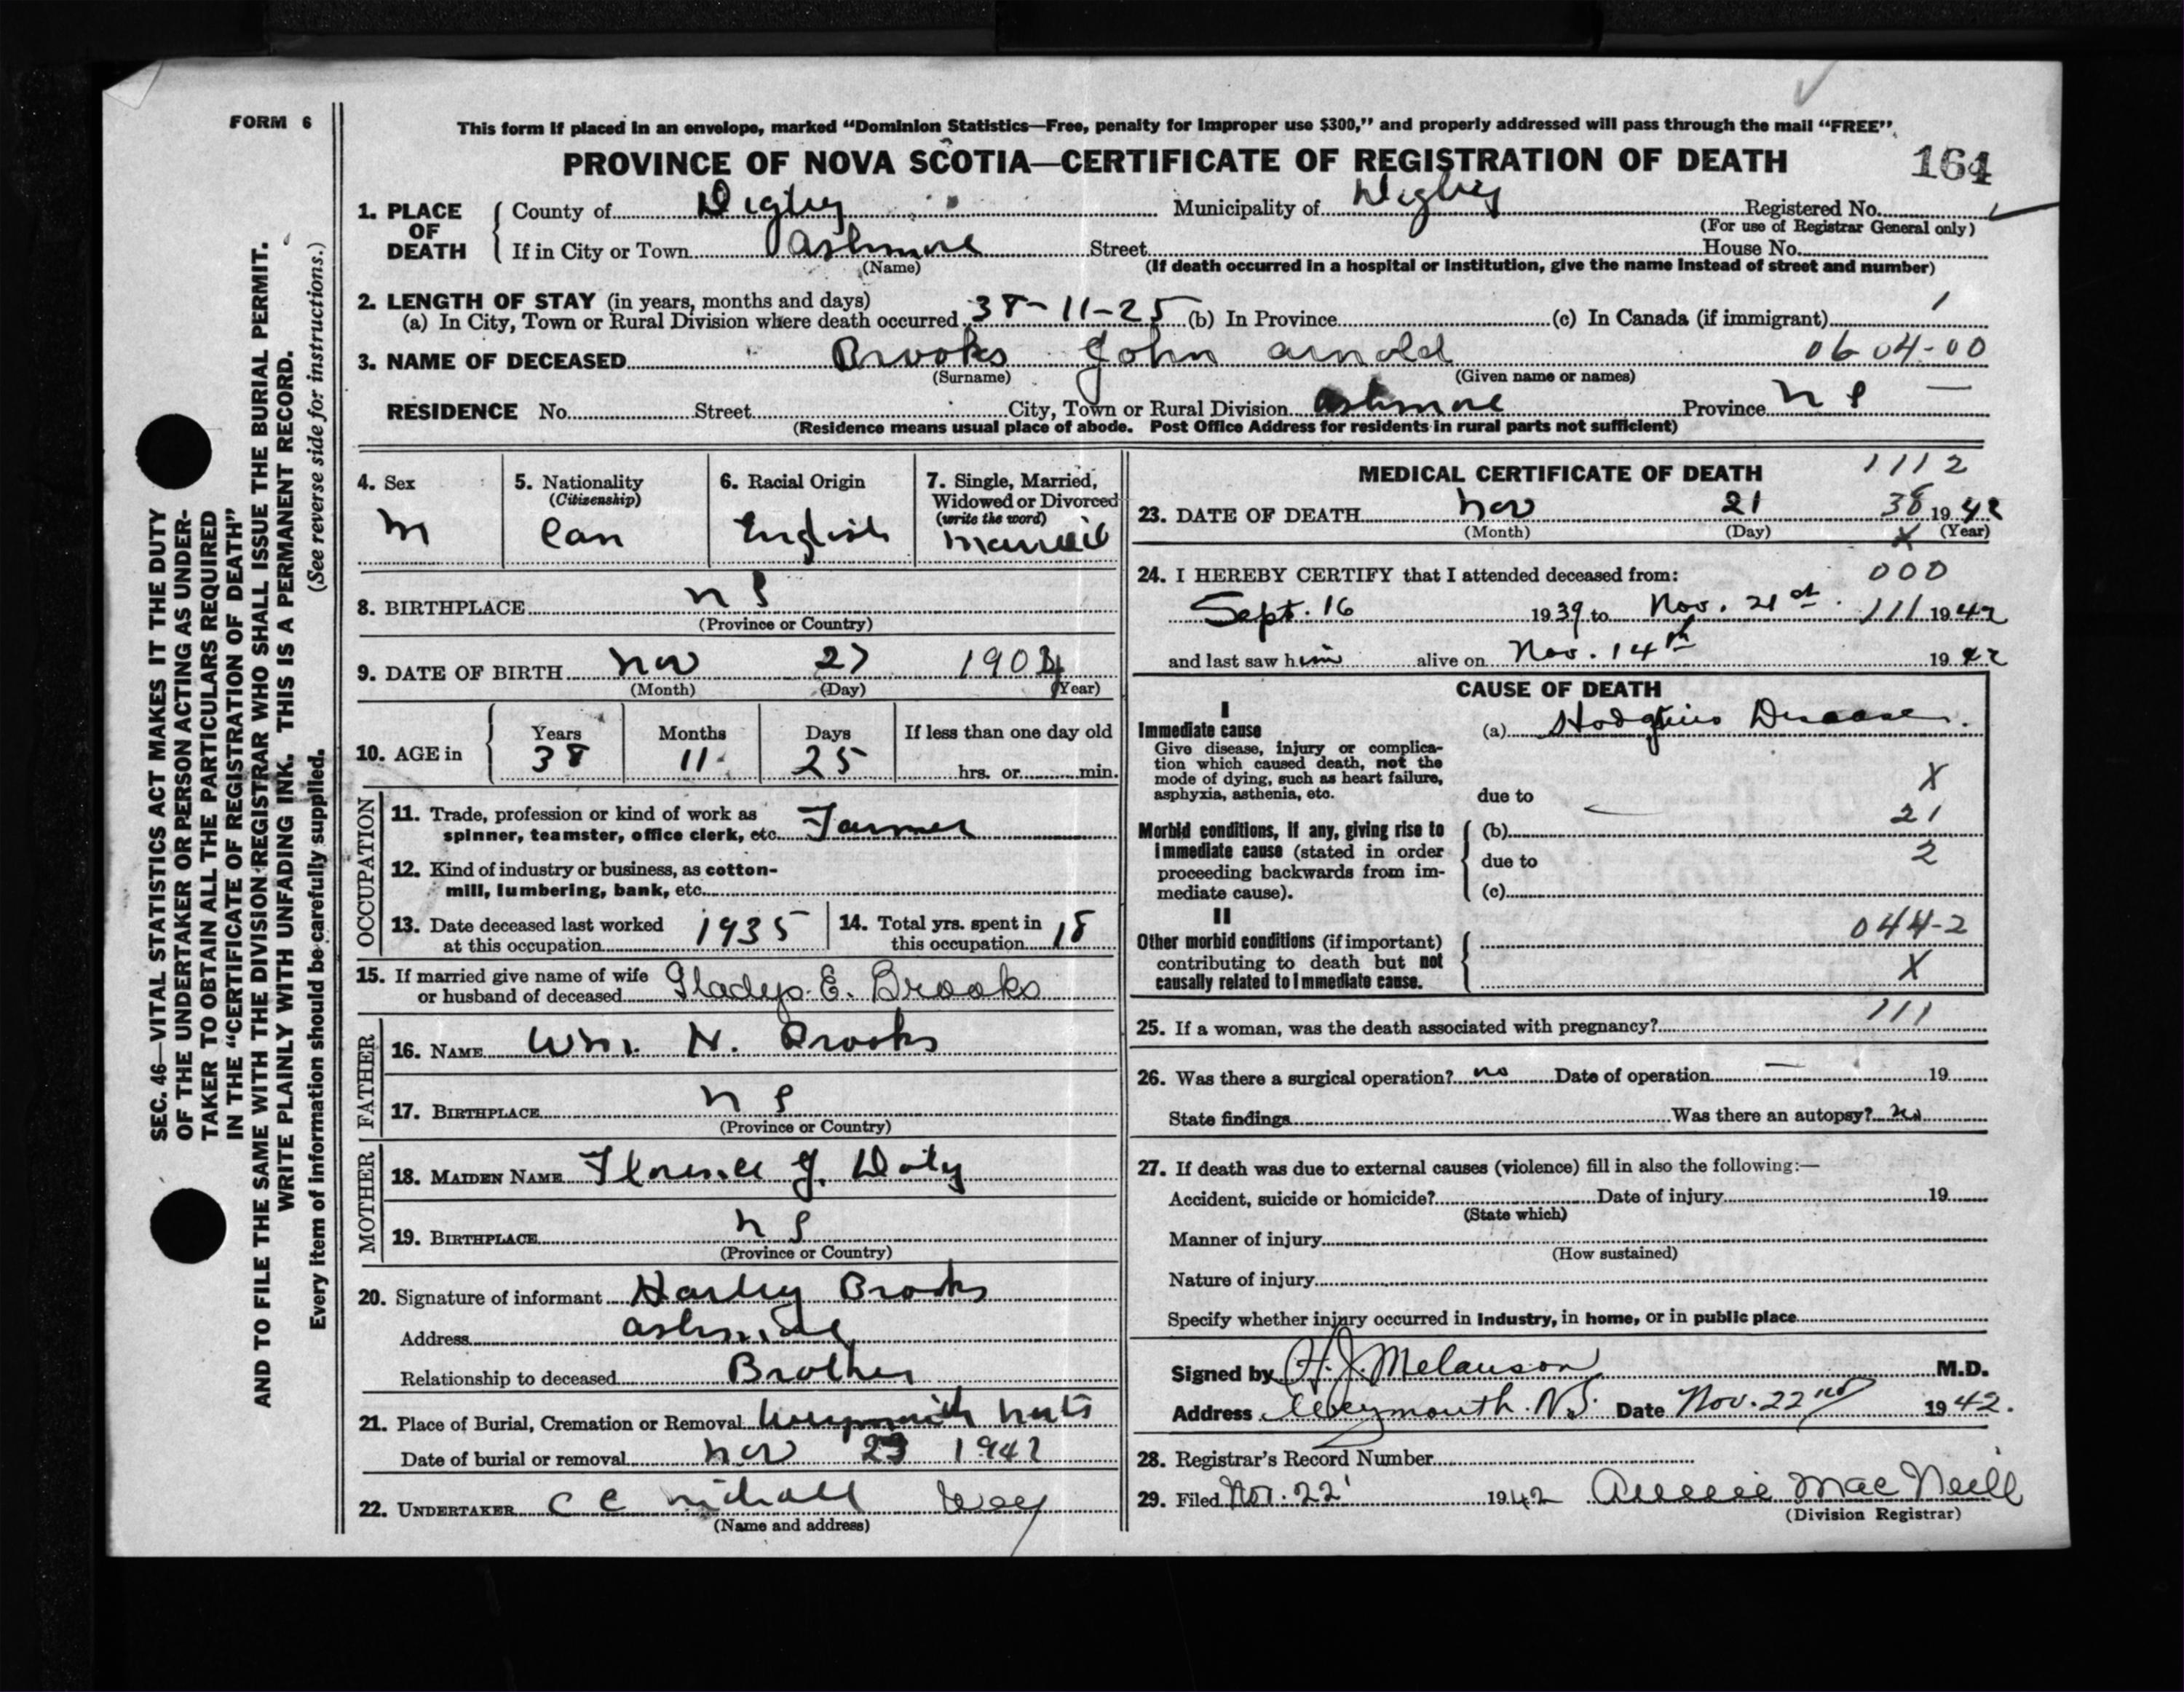 FORM 6
This form if placed in an envelope, marked “Dominion Statistics—Free, penalty for improper use $300,” and properly addressed will pass through the mail “FREE”
PROVINCE OF NOVA SCOTIA—CERTIFICATE OF REGISTRATION OF DEATH 164
1. PLACE OF DEATH { County of Digby Municipality of Digby Registered No.
(For use of Registrar General only)
If in City or Town Ashmore Street House No.
(Name) (If death occurred in a hospital or institution, give the name instead of street and number)
2. LENGTH OF STAY (in years, months and days) 1
(a) In City, Town or Rural Division where death occurred 38-11-25 (b) In Province (c) In Canada (if immigrant)
3. NAME OF DECEASED Brooks John Arnold 06-04-00
(Surname) (Given name or names)
RESIDENCE No. Street City, Town or Rural Division Ashmore Province N S —
(Residence means usual place of abode. Post Office Address for residents in rural parts not sufficient)
4. Sex
M
5. Nationality
(Citizenship)
Can
6. Racial Origin
English
7. Single, Married,
Widowed or Divorced
(write the word)
Married
8. BIRTHPLACE N S
(Province or Country)
9. DATE OF BIRTH Nov 27 1903
(Month) (Day) (Year)
10. AGE in { Years Months Days If less than one day old
38 11 25 hrs. or min.
OCCUPATION
11. Trade, profession or kind of work as
spinner, teamster, office clerk, etc. Farmer
12. Kind of industry or business, as cotton-
mill, lumbering, bank, etc.
13. Date deceased last worked
at this occupation 1935
14. Total yrs. spent in
this occupation 18
15. If married give name of wife
or husband of deceased Gladys E. Brooks
FATHER
16. NAME Wm. N. Brooks
17. BIRTHPLACE N S
(Province or Country)
MOTHER
18. MAIDEN NAME Florence J. Doty
19. BIRTHPLACE N S
(Province or Country)
20. Signature of informant Harley Brooks
Address Ashmore
Relationship to deceased Brother
21. Place of Burial, Cremation or Removal Weymouth North
Date of burial or removal Nov 23 1942
22. UNDERTAKER C C Nichall Wey
(Name and address)
MEDICAL CERTIFICATE OF DEATH 1112
23. DATE OF DEATH Nov 21 38 1942
(Month) (Day) X (Year)
24. I HEREBY CERTIFY that I attended deceased from: 000
Sept. 16 1939 to Nov. 21st 111 1942
and last saw him alive on Nov. 14th 1942
CAUSE OF DEATH
I
Immediate cause (a) Hodgkins Disease.
Give disease, injury or complica-
tion which caused death, not the
mode of dying, such as heart failure, X
asphyxia, asthenia, etc. due to —
21
Morbid conditions, if any, giving rise to (b)
immediate cause (stated in order due to 2
proceeding backwards from im-
mediate cause). (c)
II
Other morbid conditions (if important) 044-2
contributing to death but not X
causally related to immediate cause.
25. If a woman, was the death associated with pregnancy? 111
26. Was there a surgical operation? no Date of operation — 19
State findings Was there an autopsy? no
27. If death was due to external causes (violence) fill in also the following:—
Accident, suicide or homicide? Date of injury 19
(State which)
Manner of injury
(How sustained)
Nature of injury
Specify whether injury occurred in industry, in home, or in public place
Signed by H. J. Melanson M.D.
Address Weymouth N.S. Date Nov. 22nd 1942.
28. Registrar's Record Number
29. Filed Nov. 22 1942 MacNeill
(Division Registrar)
SEC. 46—VITAL STATISTICS ACT MAKES IT THE DUTY
OF THE UNDERTAKER OR PERSON ACTING AS UNDER-
TAKER TO OBTAIN ALL THE PARTICULARS REQUIRED
IN THE “CERTIFICATE OF REGISTRATION OF DEATH”
AND TO FILE THE SAME WITH THE DIVISION REGISTRAR WHO SHALL ISSUE THE BURIAL PERMIT.
WRITE PLAINLY WITH UNFADING INK. THIS IS A PERMANENT RECORD.
Every item of information should be carefully supplied. (See reverse side for instructions.)